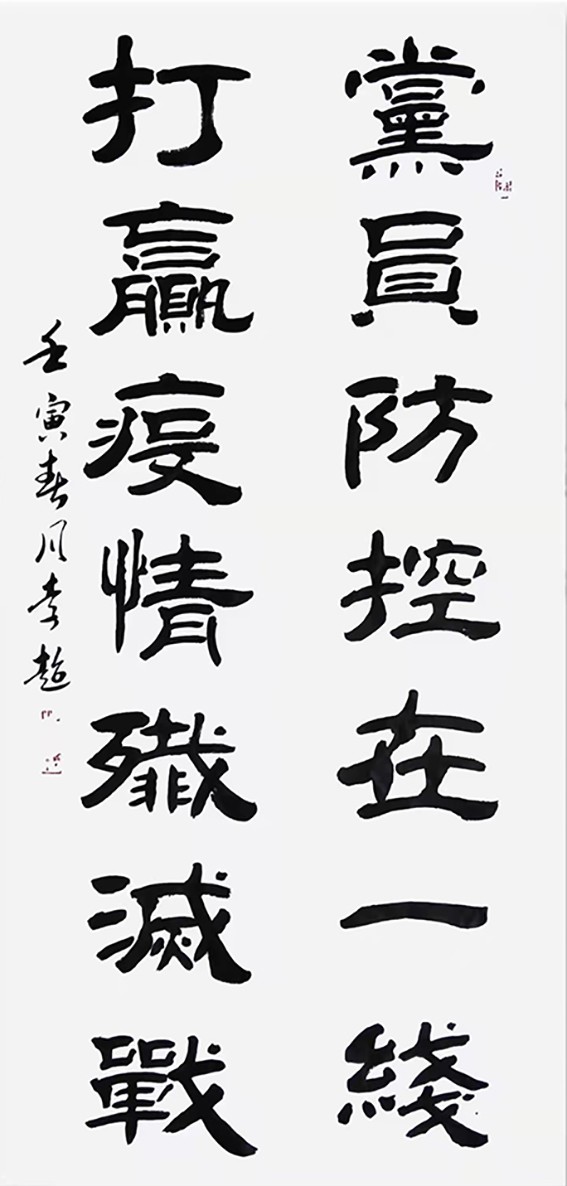 黨員防控在一綫
打贏疫情殲滅戰
壬寅春月李超